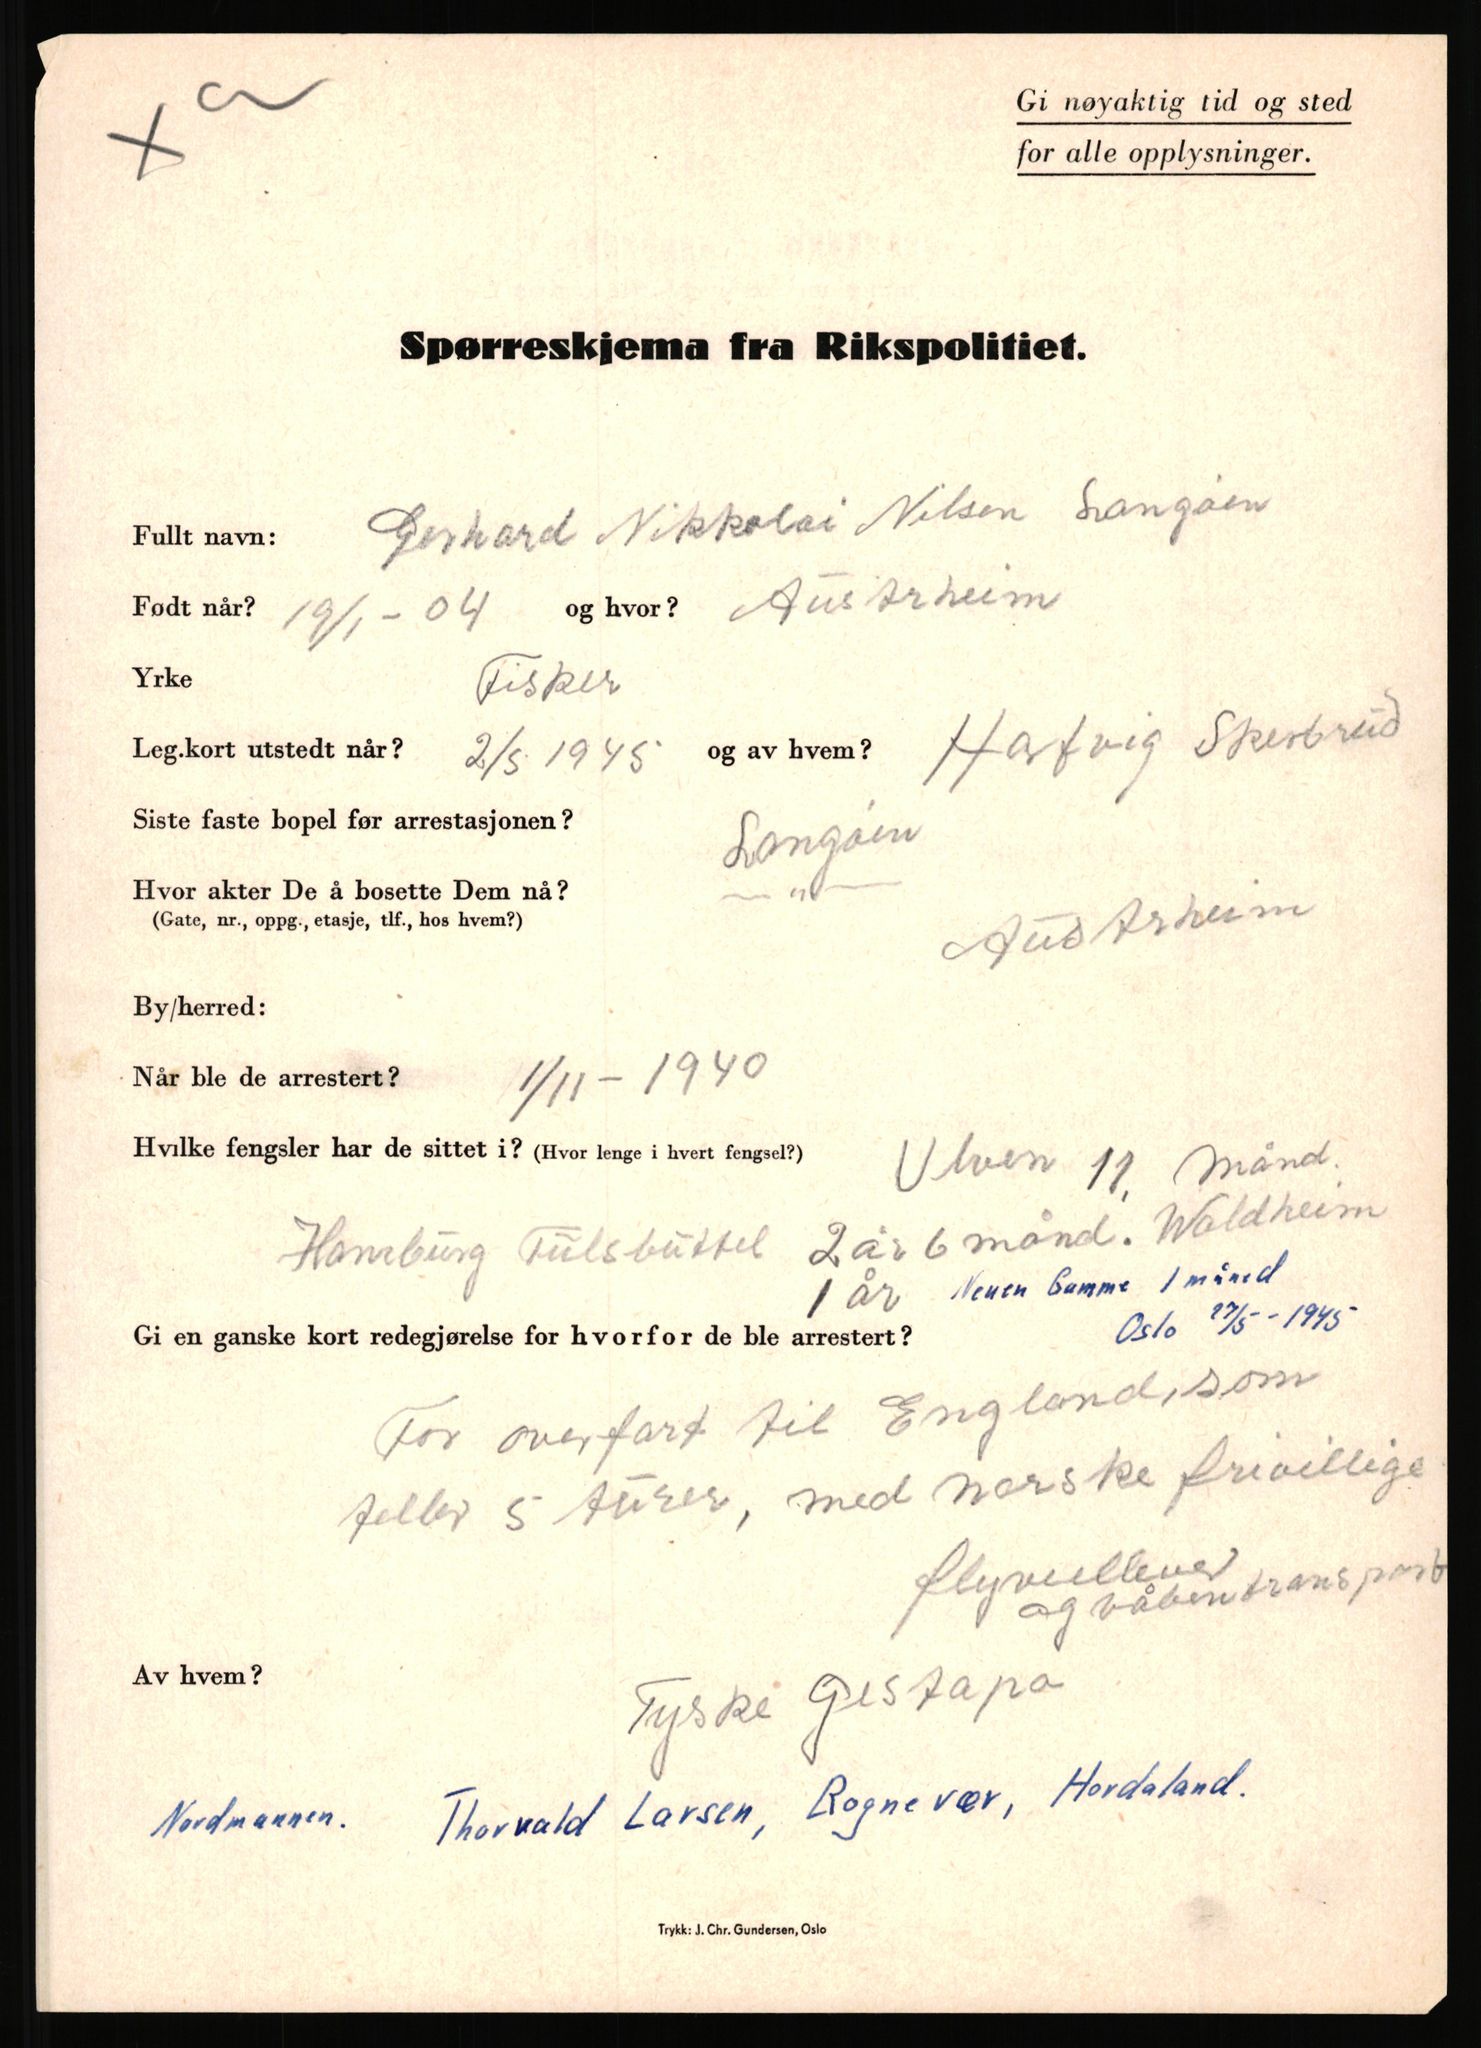 Gi nøyaktig tid og sted
for alle opplysninger.
Spørreskjema fra Rikspolitiet.
Fullt navn: Gerhard Nikkolai Nilsen Langøen
Født når? 19/1 - 04 og hvor? Austrheim
Yrke Fisker
Leg.kort utstedt når? 2/5 1945 og av hvem? Hartvig
Siste faste bopel før arrestasjonen? Langøen
Hvor akter De å bosette Dem nå? — " —
(Gate, nr., oppg., etasje, tlf., hos hvem?) Austrheim
By/herred:
Når ble de arrestert? 1/11 - 1940
Hvilke fengsler har de sittet i? (Hvor lenge i hvert fengsel?) Ulven 11, månd.
Hamburg Fulsbuttel 2 år 6 månd. Waldheim
1 år Neuen Gamme 1 måned
Gi en ganske kort redegjørelse for hvorfor de ble arrestert? Oslo 27/5 - 1945
For overfart til England, som
teller 5 turer, med norske frivillige
flyvellever
og våbentransport
Av hvem? Tyske Gestapo
Nordmannen. Thorvald Larsen, Rognevær, Hordaland.
Trykk: J. Chr. Gundersen, Oslo